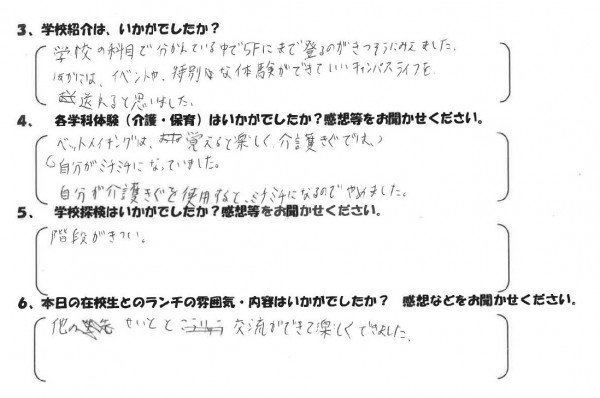 3、学校紹介は、いかがでしたか？
学校の科目で分かれている中で5Fにまで登るのがきつそうにみえました。
ほかには、イベントや、特別な体験ができていいキャンパスライフを
送れると思いました。
4、 各学科体験（介護・保育）はいかがでしたか？感想等をお聞かせください。
ベットメイキングは、覚えると楽しく、介護きぐでは、
自分がミチミチになっていました。
自分が介護きぐを使用すると、ミチミチになるのでやめました。
5、 学校探検はいかがでしたか？感想等をお聞かせください。
階段がきつい。
6、本日の在校生とのランチの雰囲気・内容はいかがでしたか？ 感想などをお聞かせください。
他の せいとと 交流ができて楽しくできました。